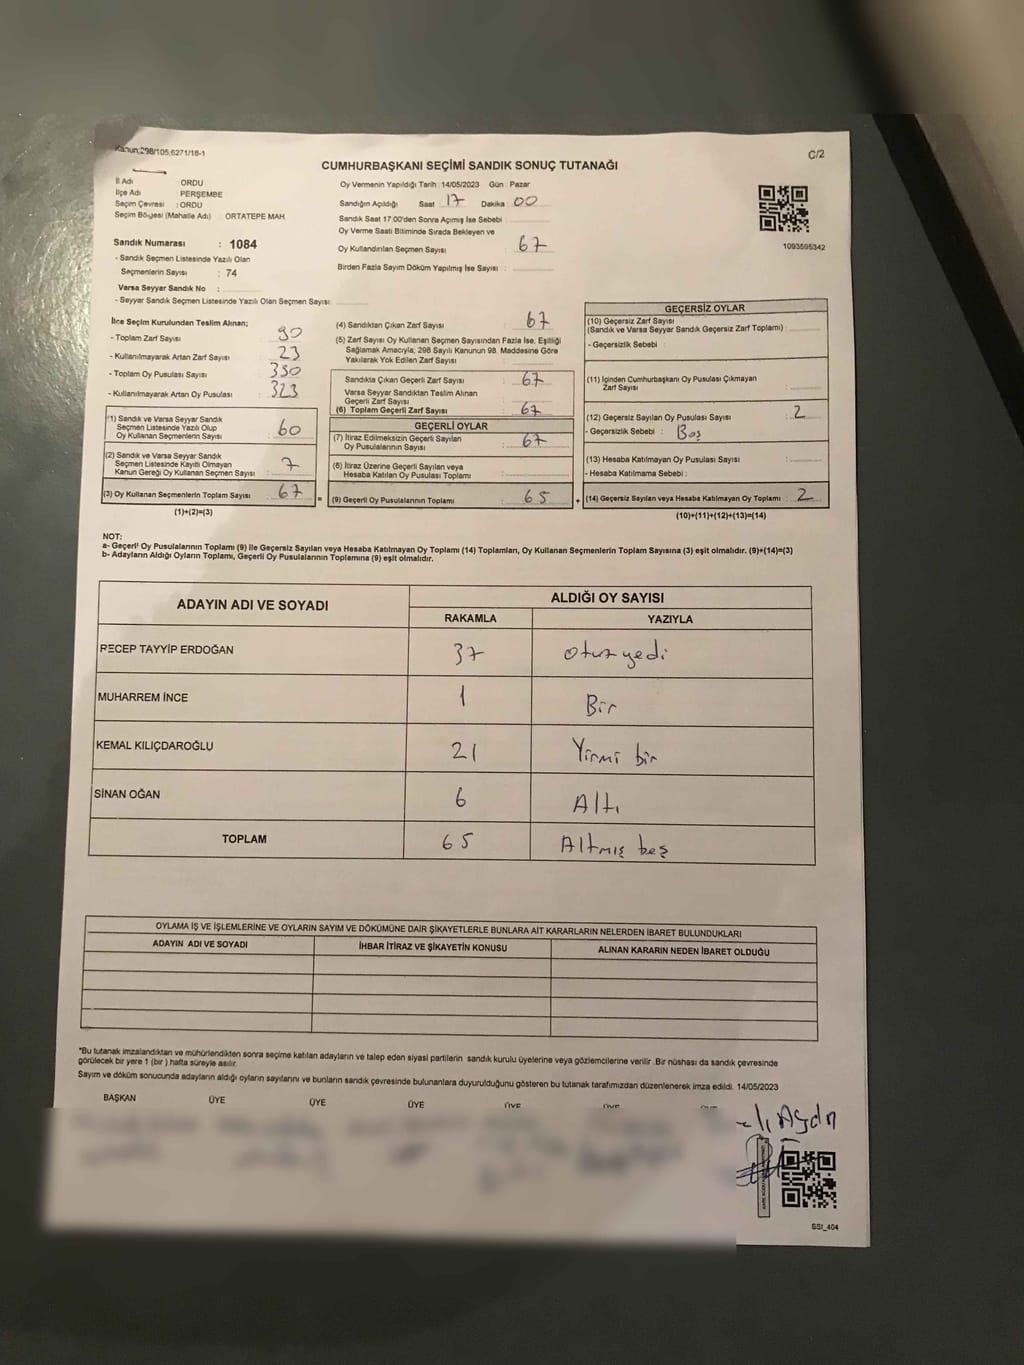 Kanun:298/105,6271/18-1
C/2
CUMHURBAŞKANI SEÇİMİ SANDIK SONUÇ TUTANAĞI
İl Adı ORDU
İlçe Adı : PERŞEMBE
Seçim Çevresi : ORDU
Seçim Bölgesi (Mahalle Adı) : ORTATEPE MAH.
Oy Vermenin Yapıldığı Tarih : 14/05/2023 Gün : Pazar
Sandığın Açıldığı Saat 17 Dakika 00
Sandık Saat 17:00'den Sonra Açılmış İse Sebebi :
Oy Verme Saati Bitiminde Sırada Bekleyen ve
Oy Kullandırılan Seçmen Sayısı : 67
Birden Fazla Sayım Döküm Yapılmış İse Sayısı :
1093595342
Sandık Numarası : 1084
- Sandık Seçmen Listesinde Yazılı Olan
Seçmenlerin Sayısı : 74
Varsa Seyyar Sandık No :
- Seyyar Sandık Seçmen Listesinde Yazılı Olan Seçmen Sayısı:
İlçe Seçim Kurulundan Teslim Alınan;
- Toplam Zarf Sayısı : 90
- Kullanılmayarak Artan Zarf Sayısı : 23
- Toplam Oy Pusulası Sayısı : 390
- Kullanılmayarak Artan Oy Pusulası : 323
(1) Sandık ve Varsa Seyyar Sandık
Seçmen Listesinde Yazılı Olup
Oy Kullanan Seçmenlerin Sayısı : 60
(2) Sandık ve Varsa Seyyar Sandık
Seçmen Listesinde Kayıtlı Olmayan
Kanun Gereği Oy Kullanan Seçmen Sayısı : 7
(3) Oy Kullanan Seçmenlerin Toplam Sayısı : 67
(1)+(2)=(3)
(4) Sandıktan Çıkan Zarf Sayısı : 67
(5) Zarf Sayısı Oy Kullanan Seçmen Sayısından Fazla İse, Eşitliği
Sağlamak Amacıyla; 298 Sayılı Kanunun 98. Maddesine Göre
Yakılarak Yok Edilen Zarf Sayısı :
Sandıkta Çıkan Geçerli Zarf Sayısı : 67
Varsa Seyyar Sandıktan Teslim Alınan
Geçerli Zarf Sayısı :
(6) Toplam Geçerli Zarf Sayısı : 67
GEÇERLİ OYLAR
(7) İtiraz Edilmeksizin Geçerli Sayılan
Oy Pusulalarının Sayısı : 67
(8) İtiraz Üzerine Geçerli Sayılan veya
Hesaba Katılan Oy Pusulası Toplamı :
= (9) Geçerli Oy Pusulalarının Toplamı : 65
GEÇERSİZ OYLAR
(10) Geçersiz Zarf Sayısı
(Sandık ve Varsa Seyyar Sandık Geçersiz Zarf Toplamı) :
- Geçersizlik Sebebi :
(11) İçinden Cumhurbaşkanı Oy Pusulası Çıkmayan
Zarf Sayısı :
(12) Geçersiz Sayılan Oy Pusulası Sayısı : 2
- Geçersizlik Sebebi : Boş
(13) Hesaba Katılmayan Oy Pusulası Sayısı :
- Hesaba Katılmama Sebebi :
+ (14) Geçersiz Sayılan veya Hesaba Katılmayan Oy Toplamı : 2
(10)+(11)+(12)+(13)=(14)
NOT:
a- Geçerli Oy Pusulalarının Toplamı (9) ile Geçersiz Sayılan veya Hesaba Katılmayan Oy Toplamı (14) Toplamları, Oy Kullanan Seçmenlerin Toplam Sayısına (3) eşit olmalıdır. (9)+(14)=(3)
b- Adayların Aldığı Oyların Toplamı, Geçerli Oy Pusulalarının Toplamına (9) eşit olmalıdır.
ADAYIN ADI VE SOYADI
ALDIĞI OY SAYISI
RAKAMLA YAZIYLA
RECEP TAYYİP ERDOĞAN 37 Otuz yedi
MUHARREM İNCE 1 Bir
KEMAL KILIÇDAROĞLU 21 Yirmi bir
SİNAN OĞAN 6 Altı
TOPLAM 65 Altmış beş
OYLAMA İŞ VE İŞLEMLERİNE VE OYLARIN SAYIM VE DÖKÜMÜNE DAİR ŞİKAYETLERLE BUNLARA AİT KARARLARIN NELERDEN İBARET BULUNDUKLARI
ADAYIN ADI VE SOYADI İHBAR İTİRAZ VE ŞİKAYETİN KONUSU ALINAN KARARIN NEDEN İBARET OLDUĞU
*Bu tutanak imzalandıktan ve mühürlendikten sonra seçime katılan adayların ve talep eden siyasi partilerin sandık kurulu üyelerine veya gözlemcilerine verilir. Bir nüshası da sandık çevresinde
görülecek bir yere 1 (bir ) hafta süreyle asılır.
Sayım ve döküm sonucunda adayların aldığı oyların sayılarını ve bunların sandık çevresinde bulunanlara duyurulduğunu gösteren bu tutanak tarafımızdan düzenlenerek imza edildi. 14/05/2023
BAŞKAN ÜYE ÜYE ÜYE ÜYE ÜYE
Aydın
SSI_404